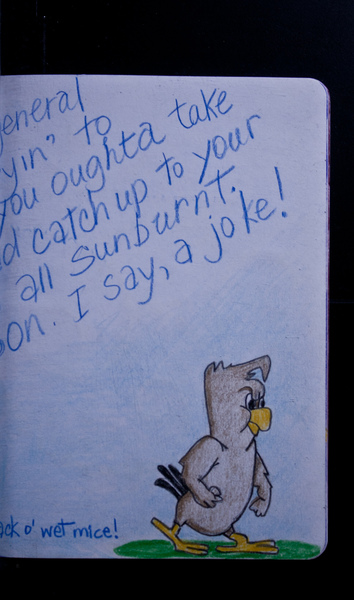 general
yin' to
you oughta take
catch up to your
all sunburnt.
on. I say, a joke!
ack o' wet mice!